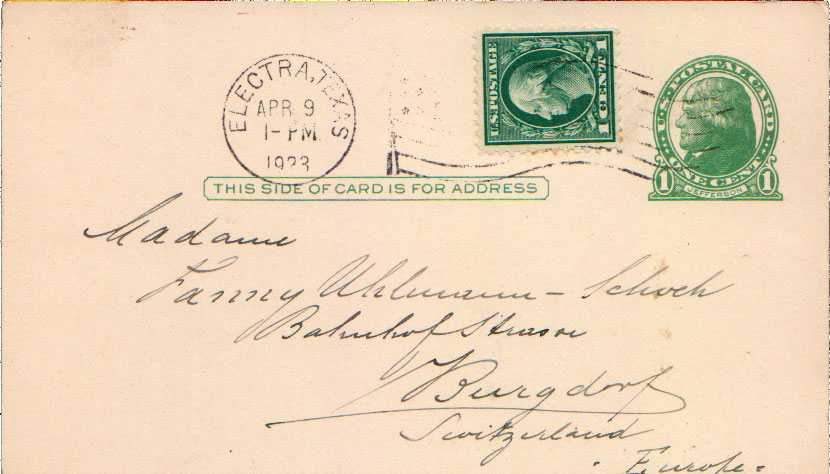 ELECTRA, TEXAS
APR 9
1-PM
1923
U.S. POSTAGE
1 CENT 1
U.S. POSTAL CARD
1 ONE CENT 1
JEFFERSON
THIS SIDE OF CARD IS FOR ADDRESS
Madame
Fanny Uhlmann-Schoch
Bahnhof Strasse
Burgdorf
Switzerland
Europe.